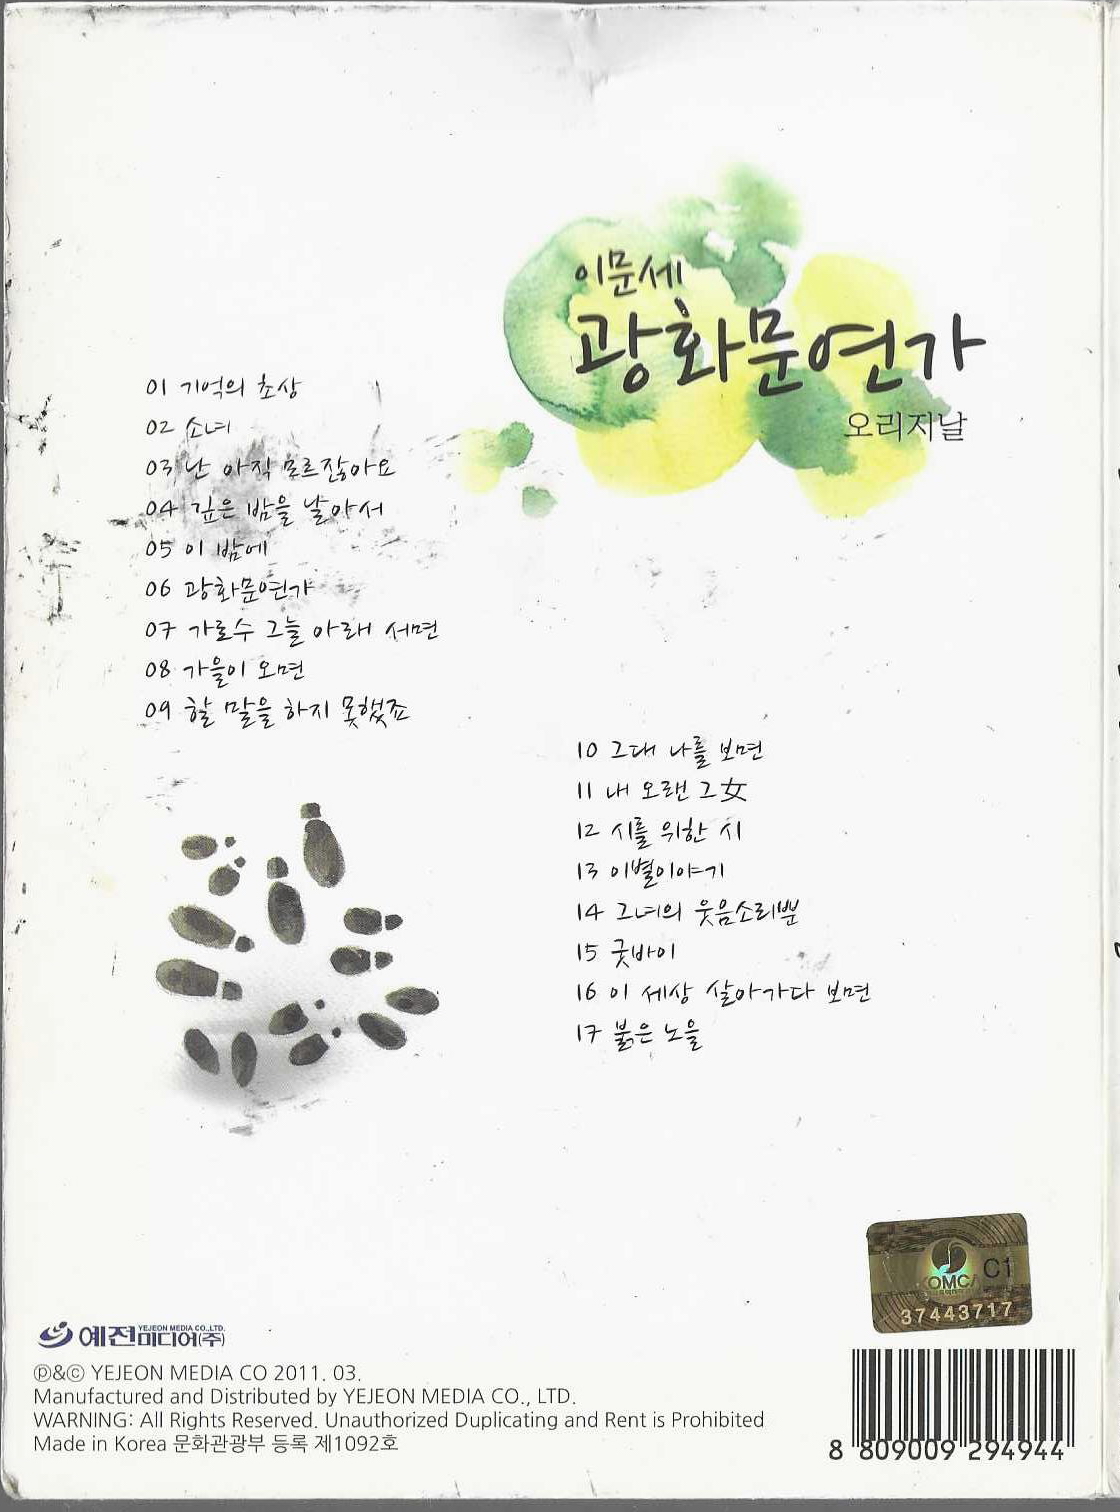 이문세
광화문연가
오리지날
01 기억의 초상
02 소녀
03 난 아직 모르잖아요
04 깊은 밤을 날아서
05 이 밤에
06 광화문연가
07 가로수 그늘 아래 서면
08 가을이 오면
09 할 말을 하지 못했죠
10 그대 나를 보면
11 내 오랜 그女
12 시를 위한 시
13 이별이야기
14 그녀의 웃음소리뿐
15 굿바이
16 이 세상 살아가다 보면
17 붉은 노을
KOMCA C1
37443717
예전미디어(주)
YEJEON MEDIA CO.,LTD.
ⓟ&ⓒ YEJEON MEDIA CO 2011. 03.
Manufactured and Distributed by YEJEON MEDIA CO., LTD.
WARNING: All Rights Reserved. Unauthorized Duplicating and Rent is Prohibited
Made in Korea 문화관광부 등록 제1092호
8 809009 294944